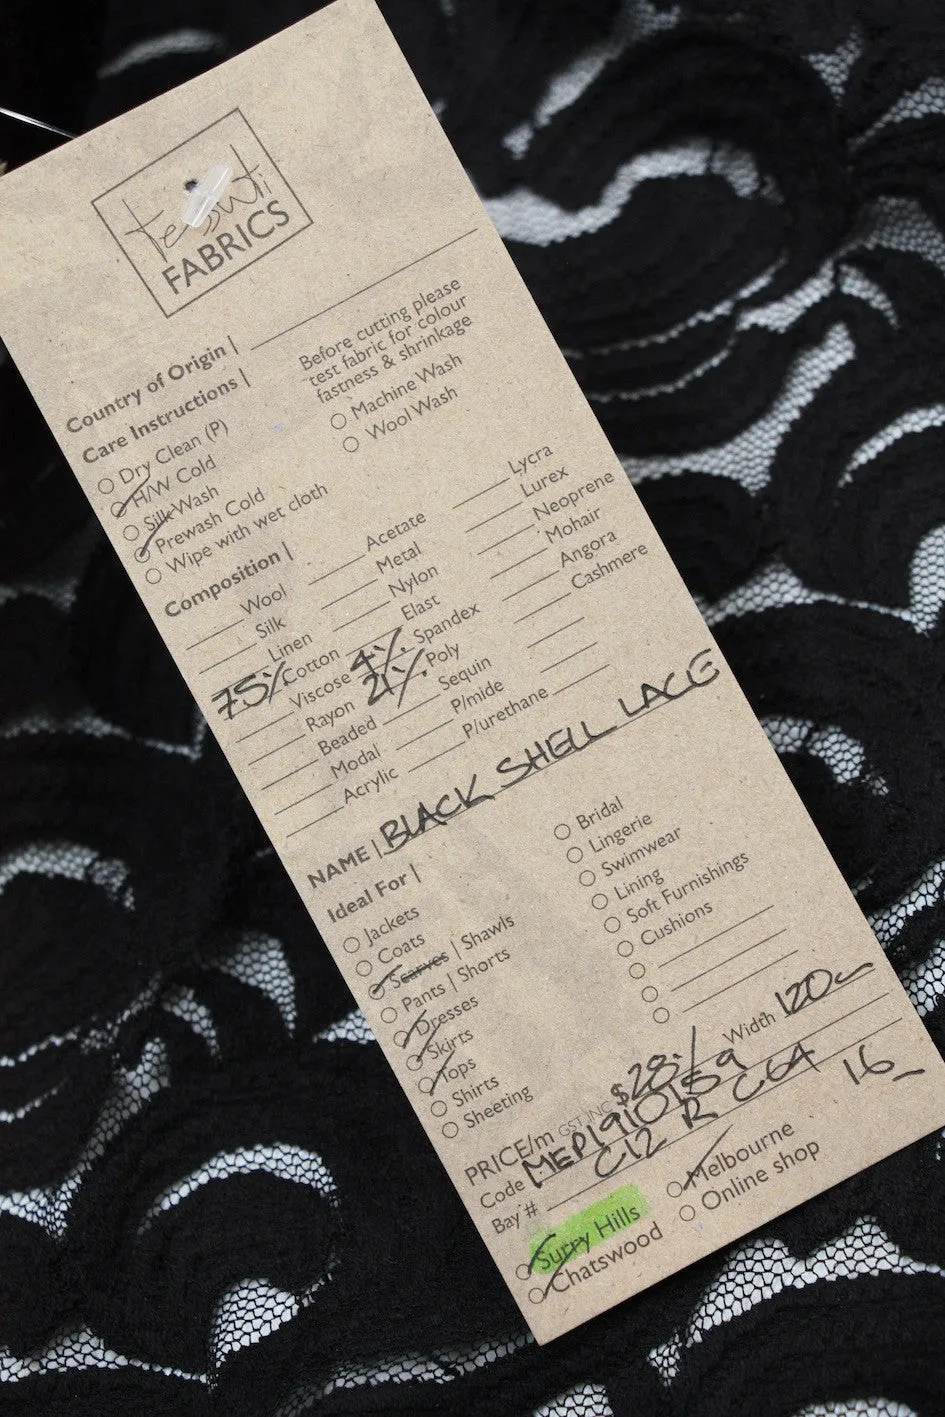 tessuti
FABRICS
Country of Origin |
Care Instructions |
Before cutting please
test fabric for colour
fastness & shrinkage
Dry Clean (P)
H/W Cold
Silk Wash
Prewash Cold
Wipe with wet cloth
Machine Wash
Wool Wash
Composition |
Wool
Silk
Linen
75% Cotton
Viscose
Rayon
Beaded
Modal
Acrylic
Acetate
Metal
Nylon
Elast
4% Spandex
21% Poly
Sequin
P/mide
P/urethane
Lycra
Lurex
Neoprene
Mohair
Angora
Cashmere
NAME | BLACK SHELL LACE
Ideal For |
Jackets
Coats
Scarves | Shawls
Pants | Shorts
Dresses
Skirts
Tops
Shirts
Sheeting
Bridal
Lingerie
Swimwear
Lining
Soft Furnishings
Cushions
PRICE/m GST INC $28./ Width 120cm
Code MEP1910159
Bay # C12 R C64 16
Surry Hills
Chatswood
Melbourne
Online shop